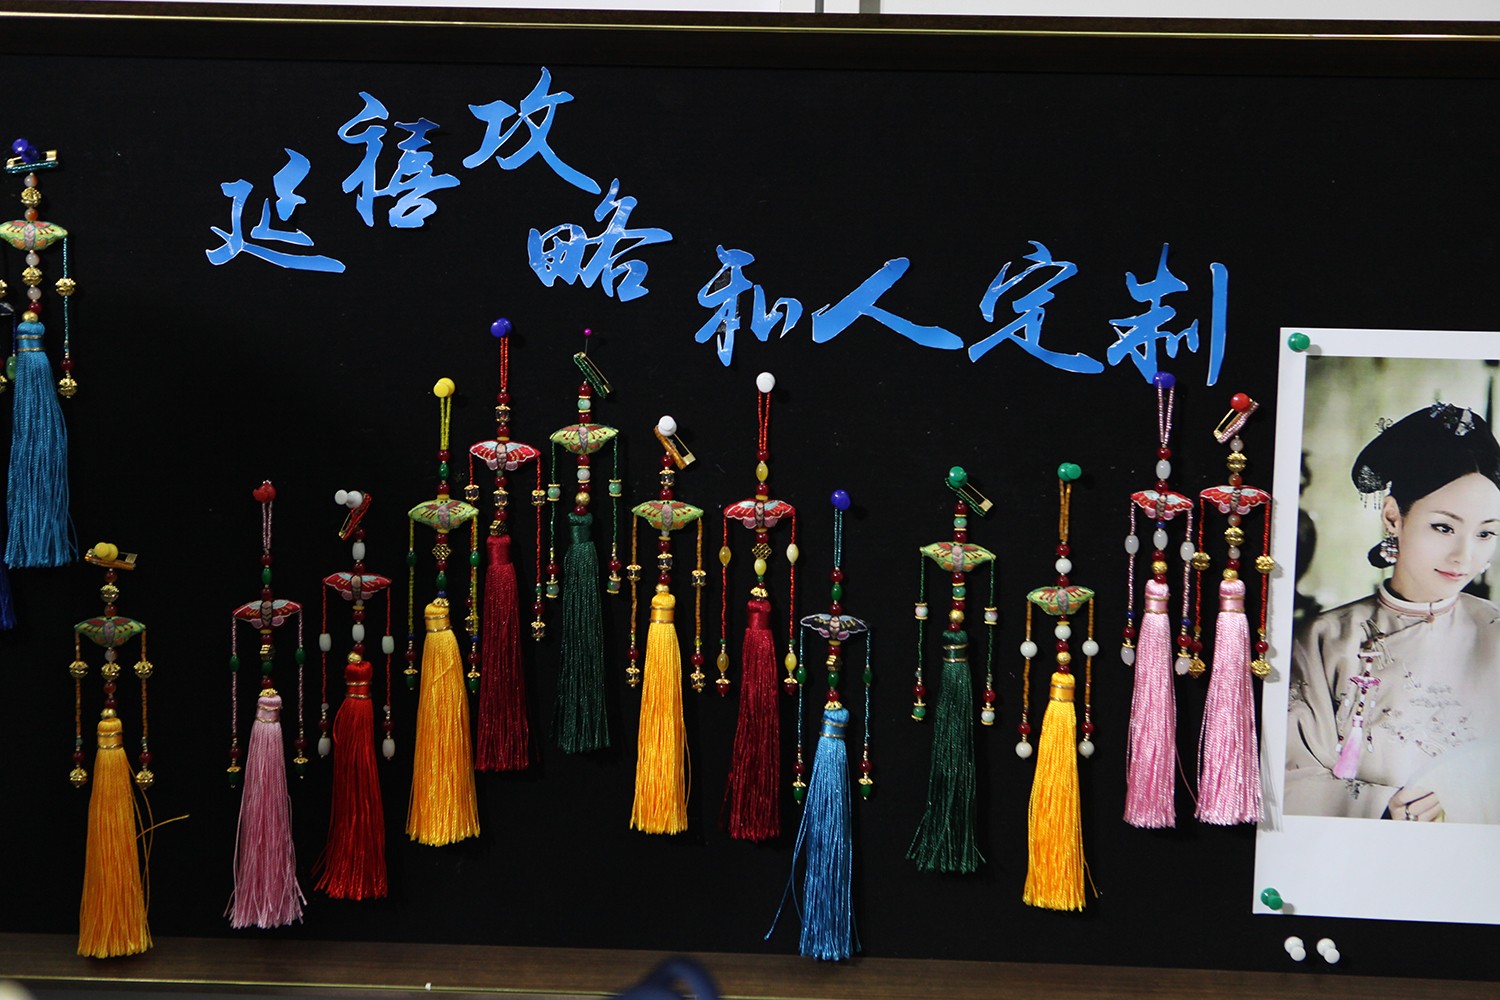 延禧攻略
私人定制